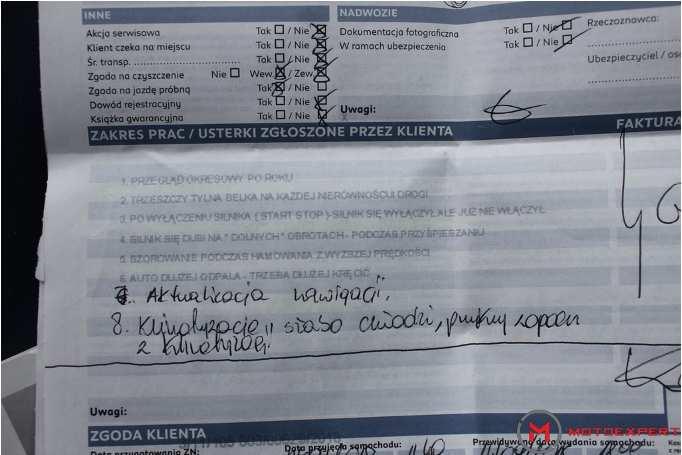 INNE
Akcja serwisowa Tak / Nie
Klient czeka na miejscu Tak / Nie
Śr. transp. Tak / Nie
Zgoda na czyszczenie Nie Wew. / Zew.
Zgoda na jazdę próbną Tak / Nie
Dowód rejestracyjny Tak / Nie
Książka gwarancyjna Tak / Nie
NADWOZIE
Dokumentacja fotograficzna Tak / Nie
W ramach ubezpieczenia Tak / Nie
Uwagi:
Rzeczoznawca:
Ubezpieczyciel /
ZAKRES PRAC / USTERKI ZGŁOSZONE PRZEZ KLIENTA
FAKTURA
1. PRZEGLĄD OKRESOWY PO ROKU
2. TRZESZCZY TYLNA BELKA NA KAŻDEJ NIERÓWNOŚCI DROGI
3. PO WYŁĄCZENIU SILNIKA ( START STOP ) SILNIK SIĘ WYŁĄCZYŁ ALE JUŻ NIE WŁĄCZYŁ
4. SILNIK SIĘ DUSI NA " DOLNYCH" OBROTACH - PODCZAS PRZYŚPIESZANIU
5. SZOROWANIE PODCZAS HAMOWANIA Z WYŻSZEJ PRĘDKOŚCI
6. AUTO DŁUŻEJ ODPALA - TRZEBA DŁUŻEJ KRĘCIĆ
Aktualizacja nawigacji.
8. słabo chłodzi, zapach
z
Uwagi:
ZGODA KLIENTA
MOTOEXPERT
Data przygotowania ZN:
Data przyjęcia samochodu:
Przewidywana data wydania samochodu: